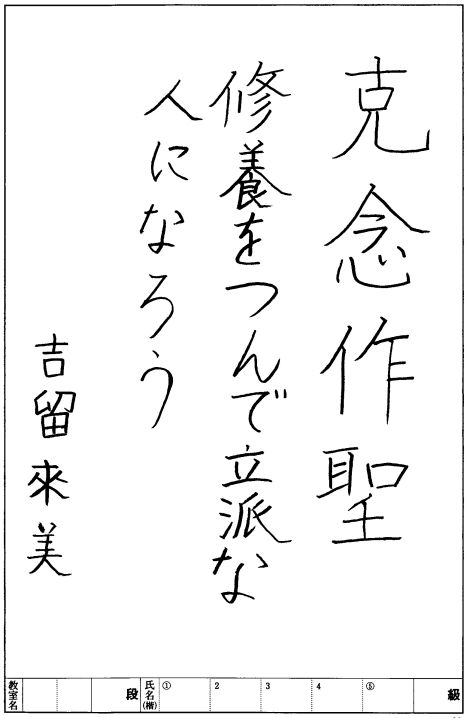 克念作聖
修養をつんで立派な
人になろう
吉留來美
教室名 段 氏名(楷) ① 2 3 4 ⑤ 級